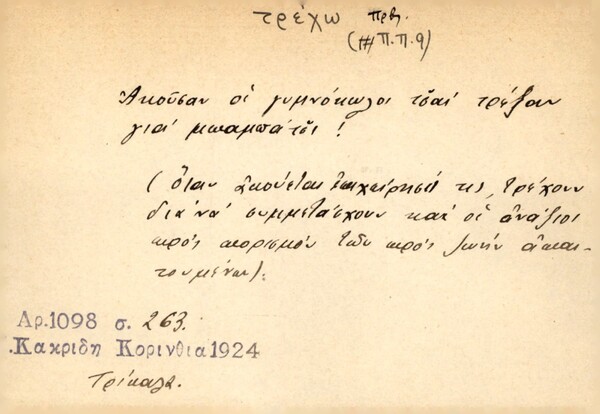 τρέχω πρβ.
(### Π.Π.9)
Ἀκοῦσαν οἱ γυμνόκωλοι τσαὶ τρέξαν
γιὰ μπαμπάτσι!
(ὅταν ἀκούεται ἐπιχείρησίς τις, τρέχουν
διὰ νὰ συμμετάσχουν καὶ οἱ ἀνάξιοι
πρὸς πορισμὸν τῶν πρὸς ζωὴν ἀπαι-
τουμένων).
Αρ.1098 σ. 263.
Κακριδη Κορινθια 1924
Τρίκαλα.